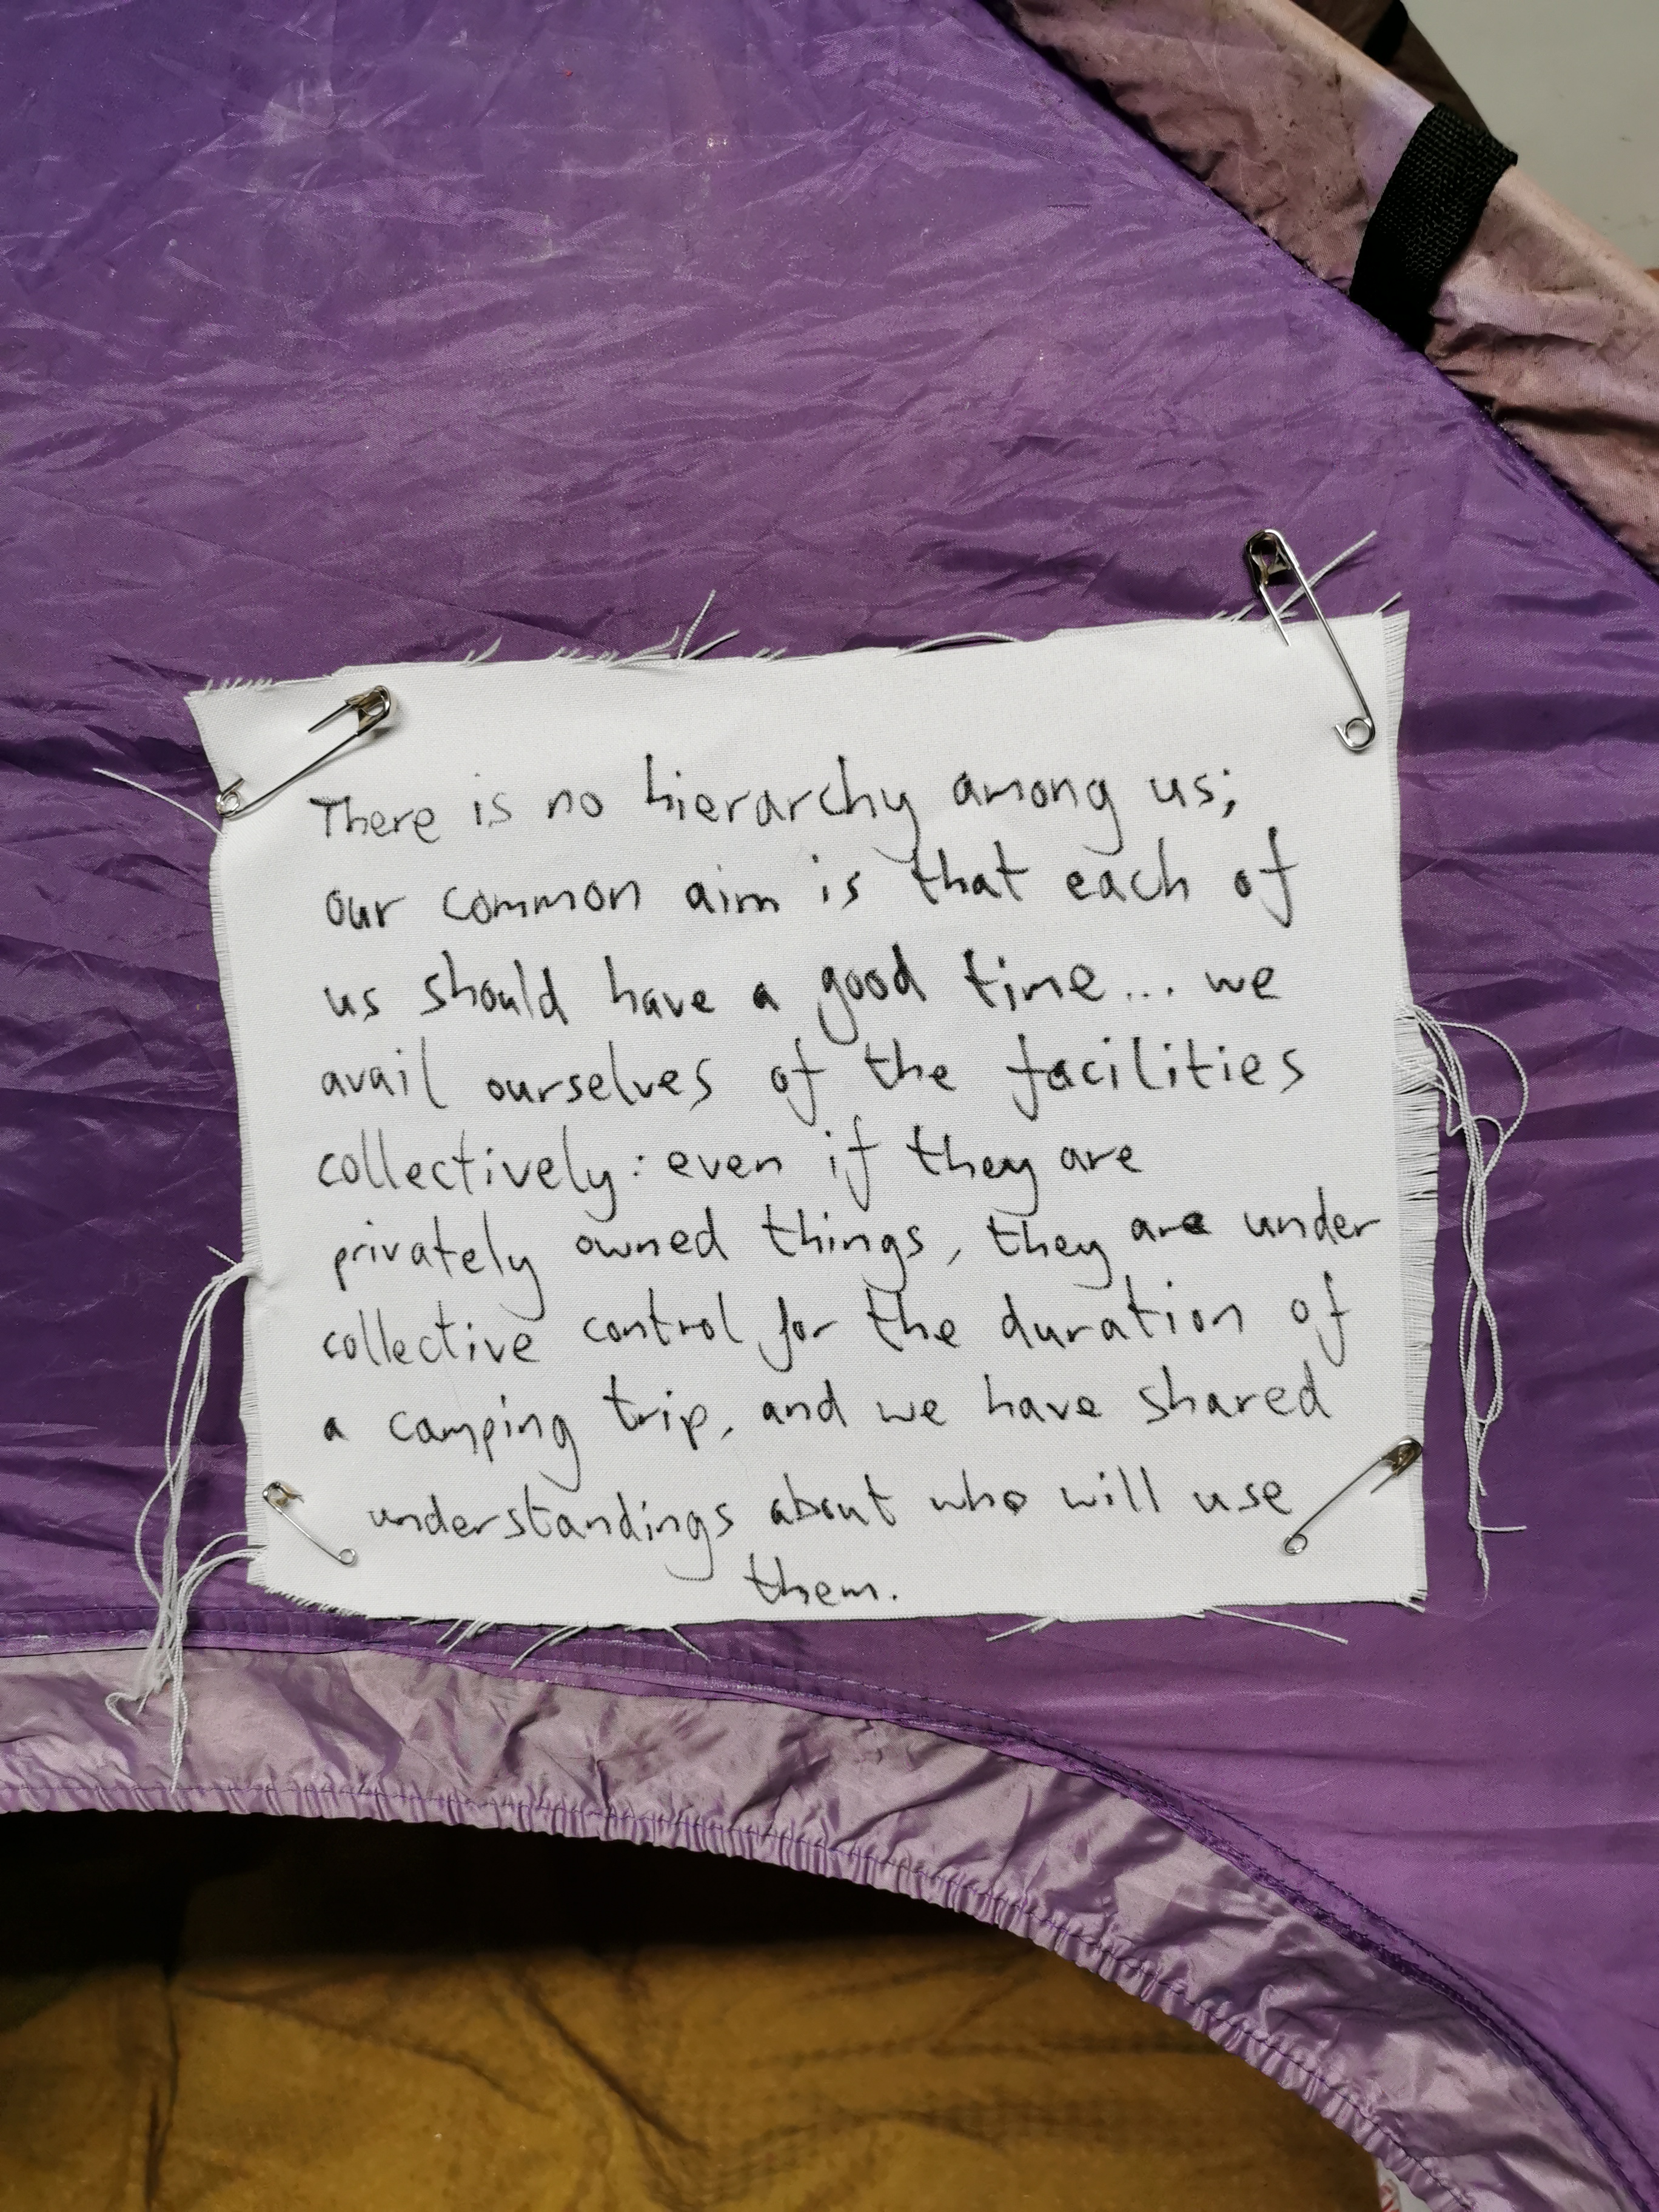 There is no hierarchy among us;
our common aim is that each of
us should have a good time... we
avail ourselves of the facilities
collectively: even if they are
privately owned things, they are under
collective control for the duration of
a camping trip, and we have shared
understandings about who will use
them.